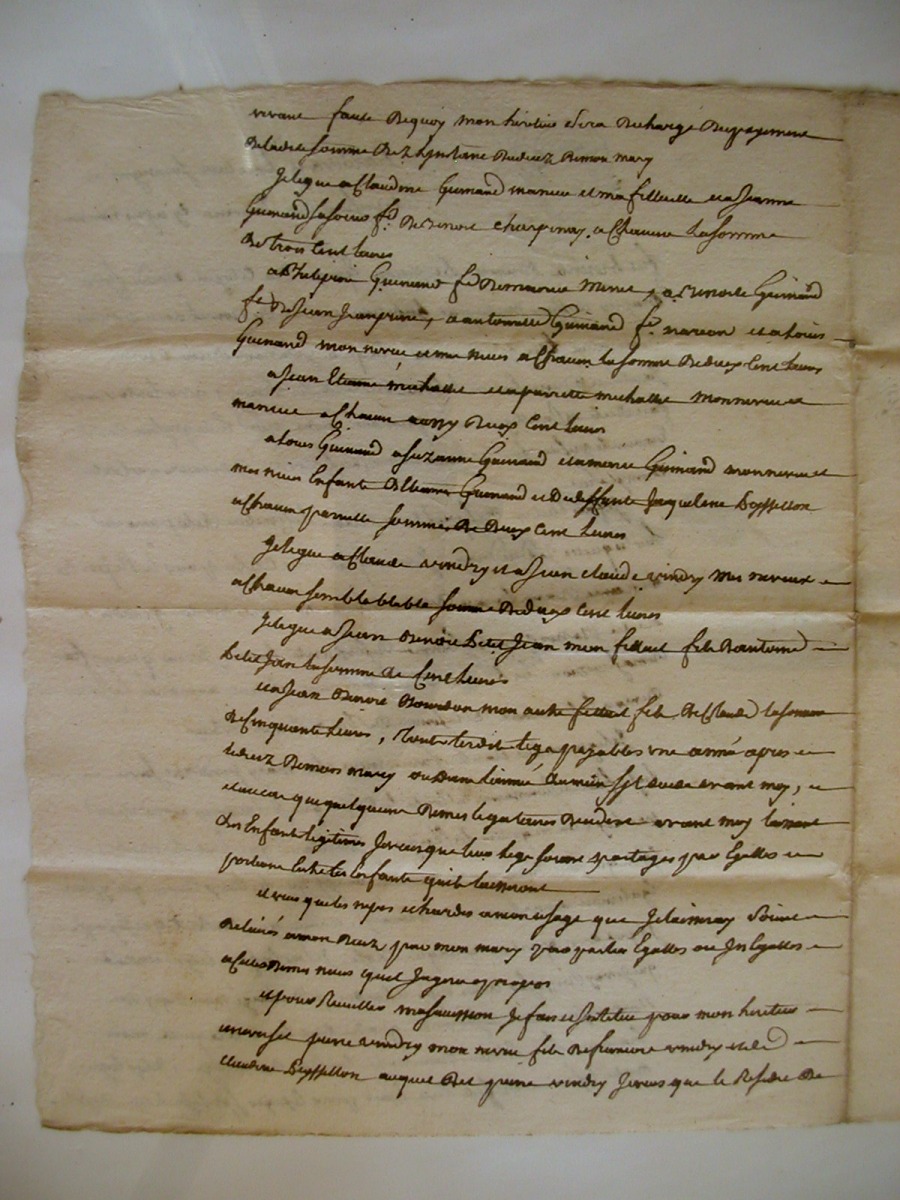 vivant faute dequoy mon heritier sera dechargé du payement
de ladite somme dez linstant du decez de mon mary
Je legue a Claudine Guinand ma niece et ma filleulle et a Jeanne
Guinand sa soeur fe. de Benoit Charpinay a Chacune la somme
de trois Cent livres
Guinand fe. de maurice a Benoite Guinand
fe. de Jean a antoinette Guinand fe. et a Louis
Guinand mon neveu et mes nieces a Chacun la somme de deux Cent livres
a Jean Etienne michallet et a pierrette michallet mon neveu et
ma niece a Chacun aussy deux Cent livres
a Louis Guinand a Suzanne Guinand et a marie Guinand mon neveu et
mes nieces Enfants Guinand et de deffunte Jacqueline Poyssellon
a Chacun pareille somme de deux Cent livres
Je legue a Claude vindry et a Jean Claude vindry mes neveux
a Chacun semblable somme de deux Cent livres
Je legue a Jean Benoit Petit Jean mon filleul fils d'antoine
Petit Jean la somme de Cent livres
et a Jean Benoit mon autre filleul fils de Claude la somme
de Cinquante livres, tout lesdit legs payables une année apres le
decez de mon mary ou une année du mien syl decede avant moy,
et au cas que quelqun de mes legataires decedent avant moy laissant
des Enfants legitimes Je veux que leurs legs soient partagés par Egalles
portions Entre les Enfants quils laisseront
et veux que les nipes et hardes a mon usage que Je laisseray soient
delivrés a mon decez par mon mary par parties Egalles ou InEgalles
a Celles de mes nieces quil Jugera apropos
et pour Recueillir ma succession Je fais et Institue pour mon heritier
universel pierre vindry mon neveu fils de vindry et de
Claudine Poyssellon auquel dit pierre vindry Je veux que le Residu de